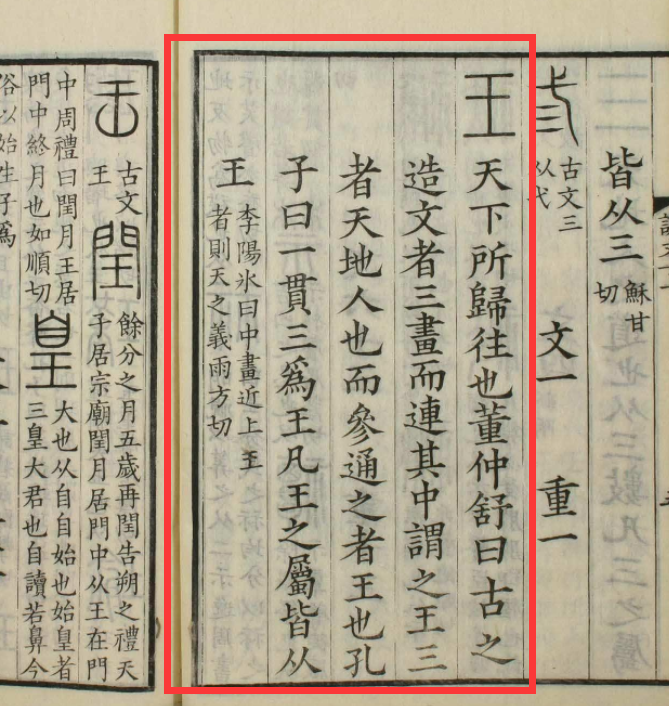 皆从三
穌甘
切
弎
古文三
从弋
文一
重一
王
天下所歸往也董仲舒曰古之
造文者三畫而連其中謂之王三
者天地人也而參通之者王也孔
子曰一貫三爲王凡王之屬皆从
王
李陽冰曰中畫近上王
者則天之義雨方切
古文
王
閏
餘分之月五歲再閏告朔之禮天
子居宗廟閏月居門中从王在門
中周禮曰閏月王居
門中終月也如順切
皇
大也从自自始也始皇者
三皇大君也自讀若鼻今
俗以始生子爲